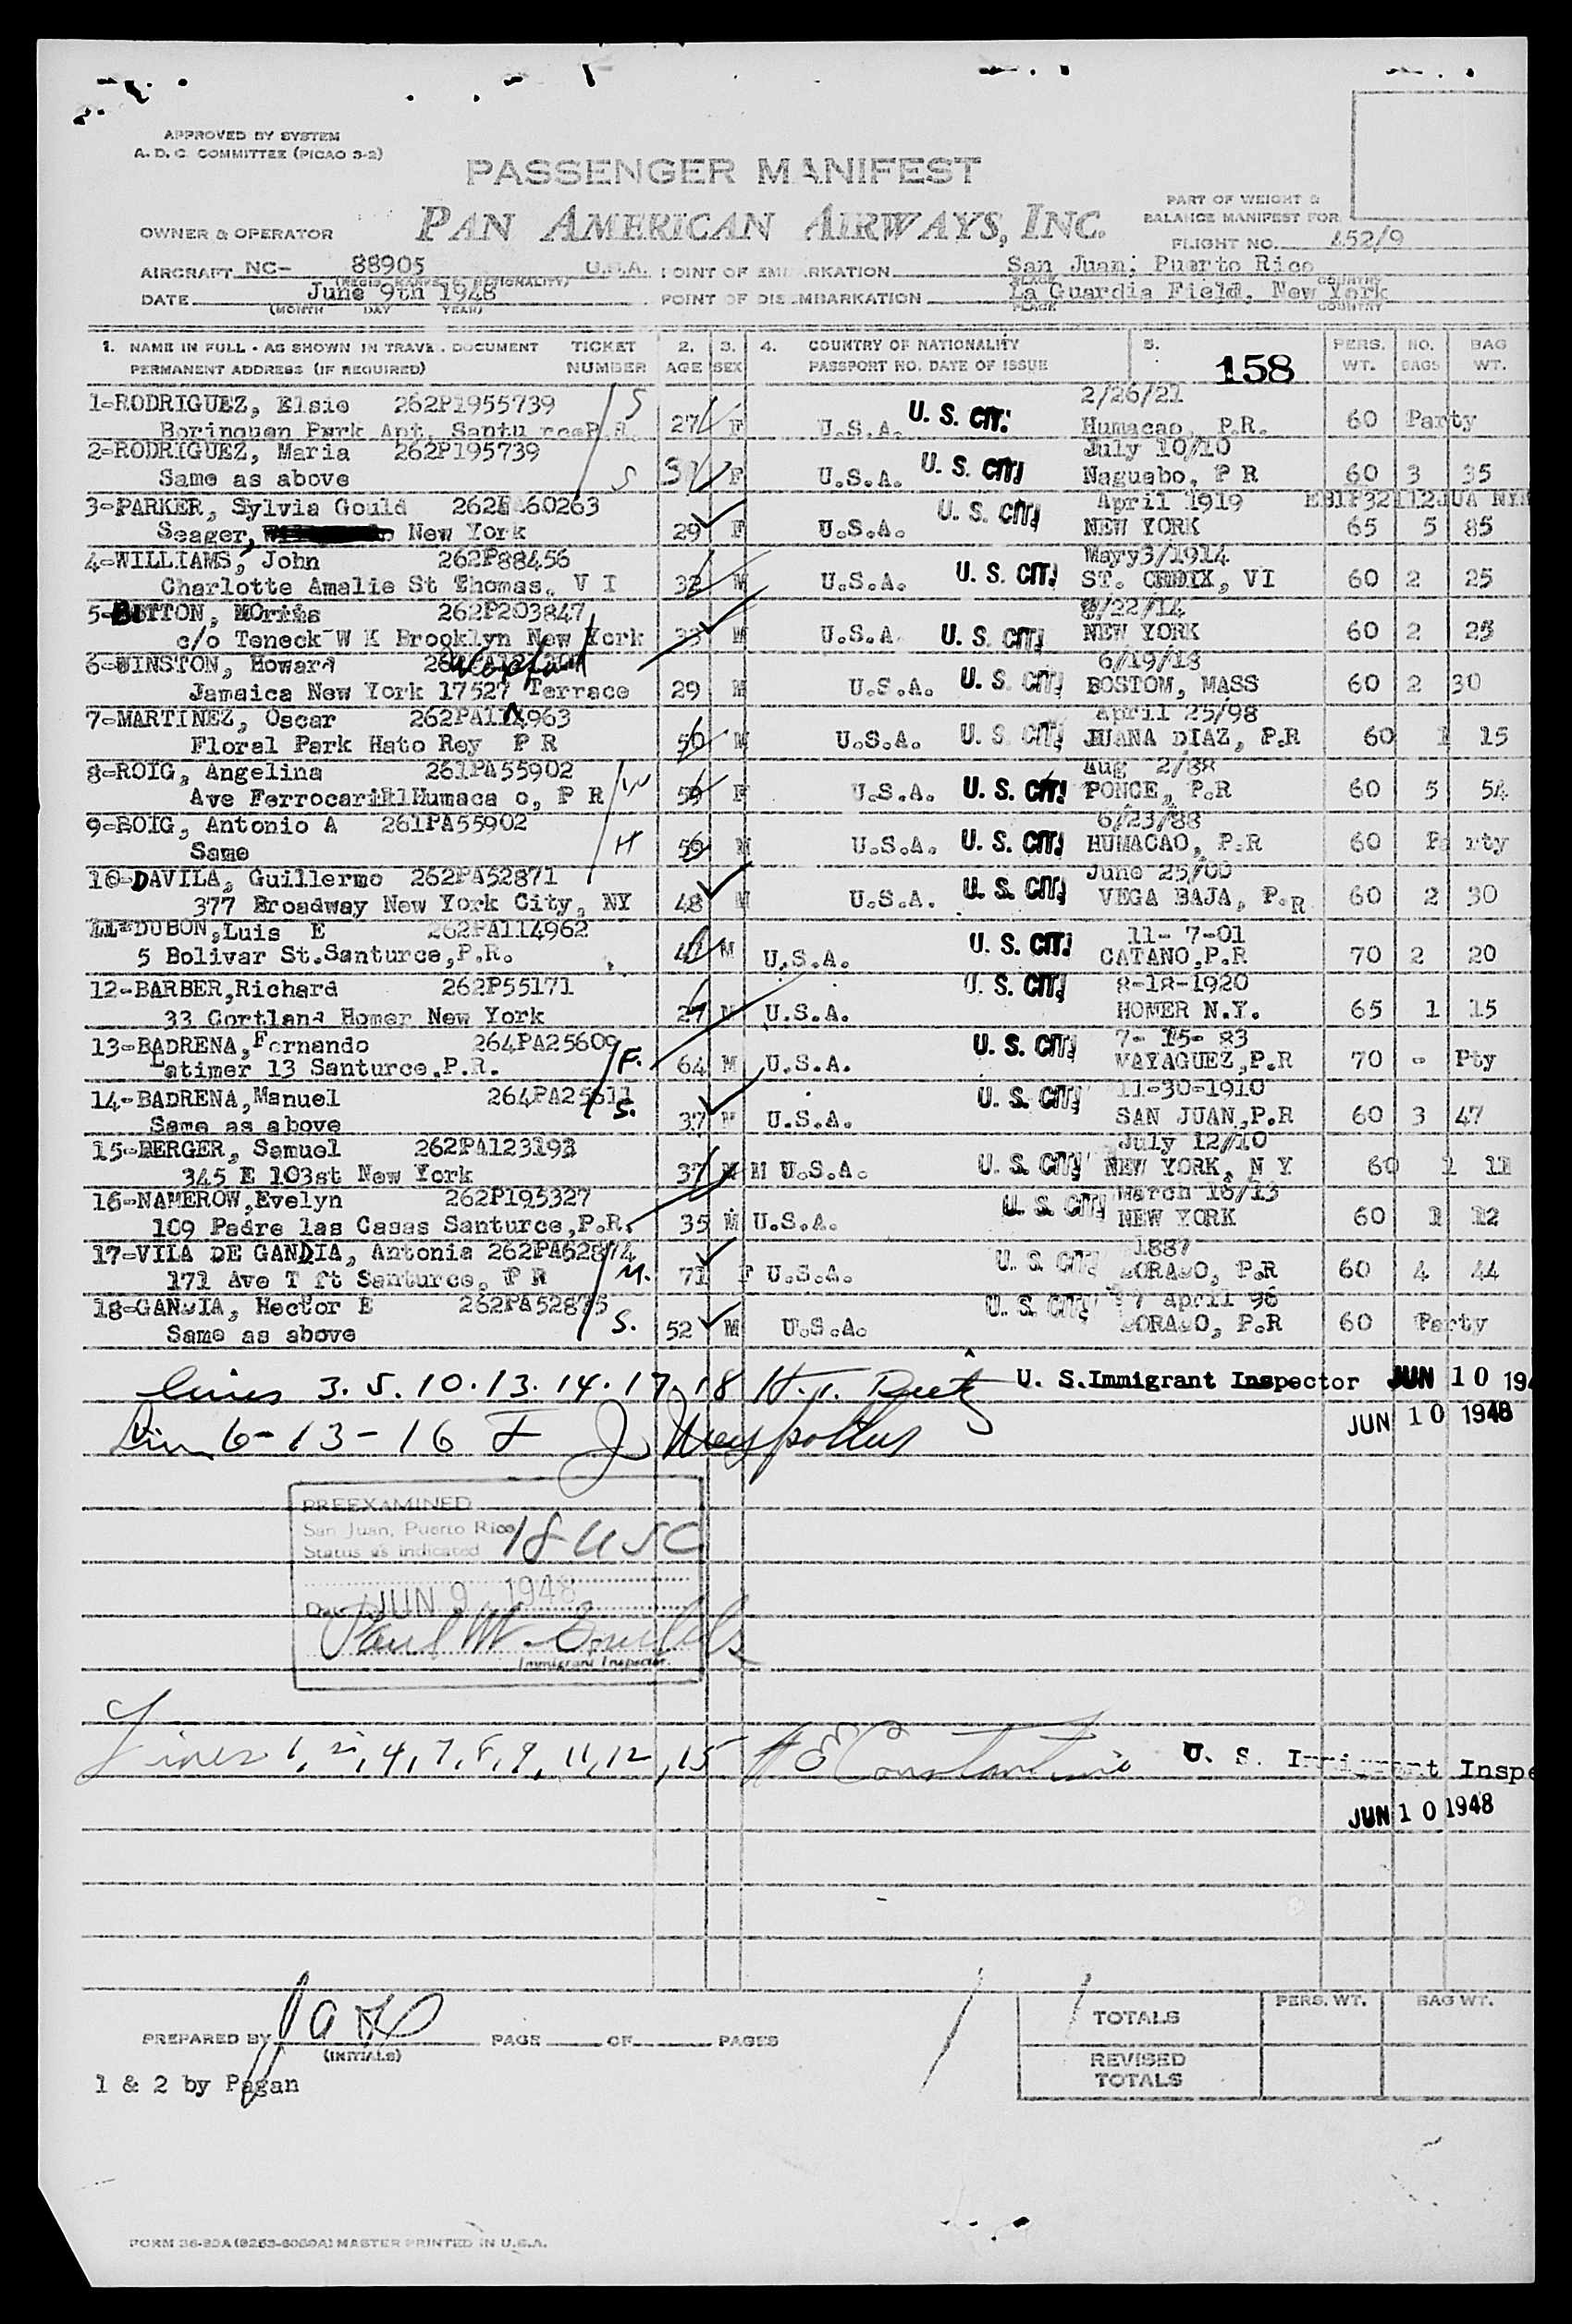 APPROVED BY SYSTEM
A. D. C. COMMITTEE (PICAO 3-2)
PASSENGER MANIFEST
PAN AMERICAN AIRWAYS, INC.
PART OF WEIGHT &
BALANCE MANIFEST FOR
OWNER & OPERATOR
FLIGHT NO. 452/9
AIRCRAFT NC- 88905 U.S.A. POINT OF EMBARKATION San Juan; Puerto Rico
DATE June 9th 1948 POINT OF DISEMBARKATION La Guardia Field, New York
(MONTH DAY YEAR) PLACE COUNTRY
1. NAME IN FULL - AS SHOWN IN TRAVEL DOCUMENT TICKET 2. 3. 4. COUNTRY OF NATIONALITY 5. PERS. NO. BAG
PERMANENT ADDRESS (IF REQUIRED) NUMBER AGE SEX PASSPORT NO. DATE OF ISSUE 158 WT. BAGS WT.
1-RODRIGUEZ, Elsie 262P1955739 S 2/26/21
Borinquen Park Apt. 27 F U.S.A. U. S. CIT. Humacao, P.R. 60 Party
2-RODRIGUEZ, Maria 262P195739 July 10/10
Same as above S 37 F U.S.A. U. S. CIT. Naguabo, P R 60 3 35
3-PARKER, Sylvia Gould April 1919
Seager, New York 29 F U.S.A. U. S. CIT. NEW YORK 65 5 85
4-WILLIAMS, John 262P88456 Mayy3/1914
Charlotte Amalie St Thomas, V I 32 M U.S.A. U. S. CIT. ST. CROIX, VI 60 2 25
262P203847 /22/14
c/o Teneck-W K Brooklyn New York 33 M U.S.A. U. S. CIT. NEW YORK 60 2 25
6-WINSTON, Howard 6/19/18
Jamaica New York 17527 Terrace 29 M U.S.A. U. S. CIT. BOSTOM, MASS 60 2 30
7-MARTINEZ, Oscar April 25/98
Floral Park Hato Rey P R 50 M U.S.A. U. S. CIT. JUANA DIAZ, P.R 60 1 15
8-ROIG, Angelina 261PA55902 W Aug 2/88
Ave Humaca o, P R 59 F U.S.A. U. S. CIT. PONCE, P.R 60 5 54
9-ROIG, Antonio A 261PA55902 6/23/88
Same H 59 M U.S.A. U. S. CIT. HUMACAO, P.R 60 Pa rty
10-DAVILA, Guillermo 262PA52871 June 25/00
377 Broadway New York City, NY 48 M U.S.A. U. S. CIT. VEGA BAJA, P.R 60 2 30
11-DUBON,Luis E 262PA114962 11- 7-01
5 Bolivar St.Santurce,P.R. 47 M U.S.A. U. S. CIT. CATANO,P.R 70 2 20
12-BARBER,Richard 262P55171 U. S. CIT. 8-18-1920
33 Cortland Homer New York 27 M U.S.A. HOMER N.Y. 65 1 15
13-BADRENA,Fernando 264PA25609 7- 15- 83
Latimer 13 Santurce,P.R. F. 64 M U.S.A. U. S. CIT. MAYAGUEZ,P.R 70 - Pty
14-BADRENA,Manuel 264PA25611 11-30-1910
Same as above S. 37 M U.S.A. U. S. CIT. SAN JUAN,P.R 60 3 47
15-BERGER, Samuel 262PA123193 July 12/10
345 E 103st New York 37 M M U.S.A. U. S. CIT. NEW YORK, N Y 60 1 11
16-NAMEROW,Evelyn 262P195327 March 16/13
109 Padre las Casas Santurce,P.R. 35 M U.S.A. U. S. CIT. NEW YORK 60 1 12
17-VILA DE GANDIA, Antonia 262PA62874 1887
171 Ave T ft Santurce, P R M. 71 F U.S.A. U. S. CIT. DORADO, P.R 60 4 44
18-GANDIA, Hector E 262PA52875 7 April 96
Same as above S. 52 M U.S.A. U. S. CIT. DORADO, P.R 60 Party
Lines 3.5.10.13.14.17.18 U. S. Immigrant Inspector JUN 10 194
6-13-16 JUN 10 1948
PREEXAMINED
San Juan, Puerto Rico
Status as indicated 18 USC
Date JUN 9 1948
Paul M.
Immigrant Inspector.
Lines 1, 2, 4, 7, 8, 9, 11, 12, 15 H E Constantine U. S. Immigrant Inspe
JUN 10 1948
PREPARED BY PAGE OF PAGES
(INITIALS)
TOTALS PERS. WT. BAG WT.
REVISED
TOTALS
1 & 2 by Pagan
FORM 36-83A MASTER PRINTED IN U.S.A.